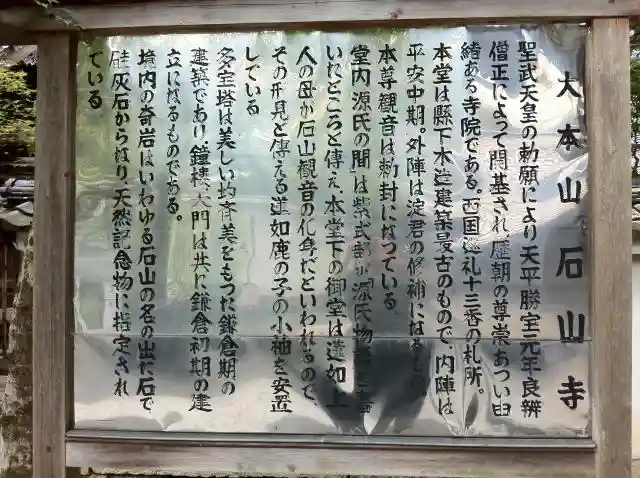 大本山石山寺
聖武天皇の勅願により天平勝宝元年良辨
僧正によって開基され歴朝の尊崇あつい由
緒ある寺院である。西国巡礼十三番の札所。
本堂は縣下木造建築最古のもので、内陣は
平安中期。外陣は淀君の修補になるもの。
本尊観音は勅封になっている。
堂内「源氏の間」は紫式部が源氏物語を書
いたところと傳え、本堂下の御堂は蓮如上
人の母が石山観音の化身だといわれるので、
その形見と傳える蓮如鹿の子の小袖を安置
している
多宝塔は美しい均斉美をもつた鎌倉期の
建築であり鐘楼、大門は共に鎌倉初期の建
立になるものである。
境内の奇岩はいわゆる石山の名の出た石で
硅灰石からなり、天然記念物に指定され
ている